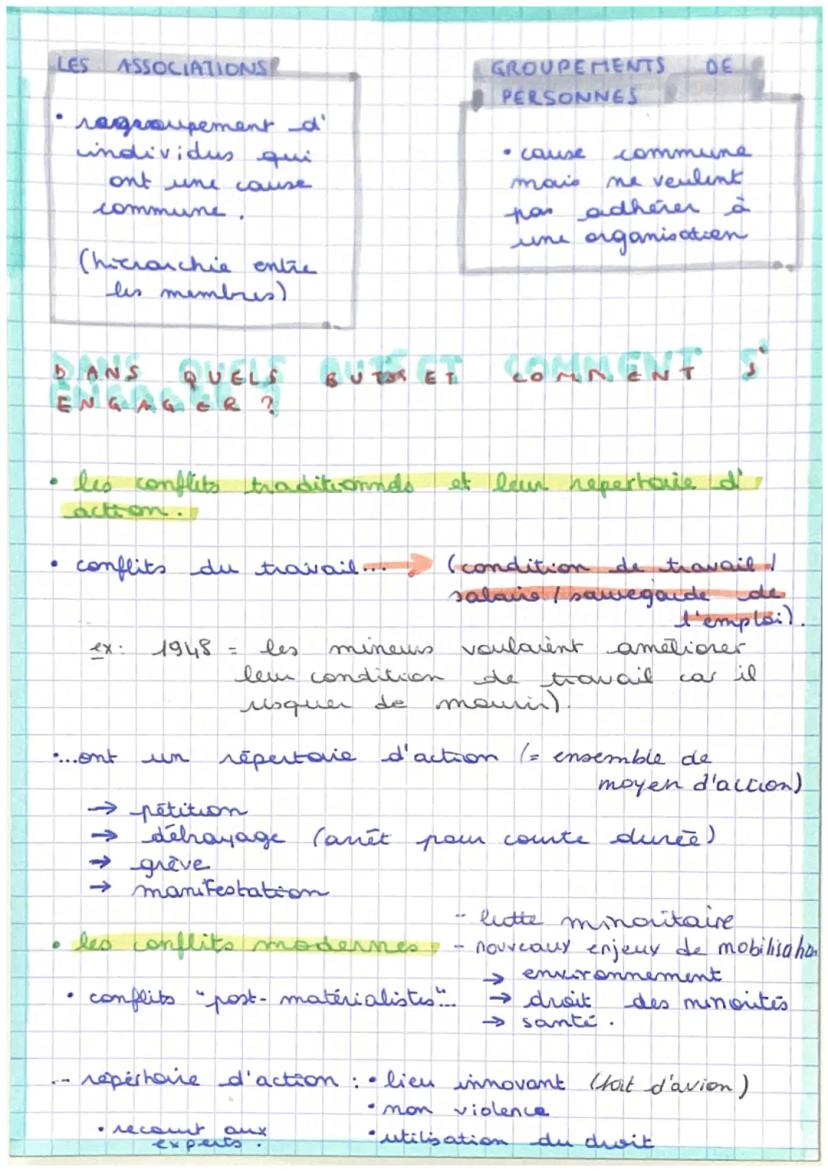 LES ASSOCIATIONS
• regroupement d'
individus qui
ont une cause
commune.
(hiérarchie entre
les membres)
GROUPEMENTS DE
PERSONNES
• cause commune
mais ne veulent
pas adhérer à
une organisation
DANS QUELS BUTS ET COMMENT S'
ENGAGER ?
• les conflits traditionnels et leur repertoire d'
action.
• conflits du travail... → (condition de travail /
salaire / sauvegarde de
l'emploi).
ex: 1948 = les mineurs voulaient améliorer
leur condition de travail car il
risquer de mourir).
•...ont un répertoire d'action (= ensemble de
moyen d'action)
→ pétition
→ débrayage (arrêt pour courte durée)
→ grève
→ manifestation
• les conflits modernes
- lutte minoritaire
- nouveaux enjeux de mobilisation
→ environnement
• conflits "post-matérialistes"...
→ droit des minorités
→ santé.
... répértoire d'action : • lieu innovant (toit d'avion)
• non violence
• recourt aux
experts.
• utilisation du droit